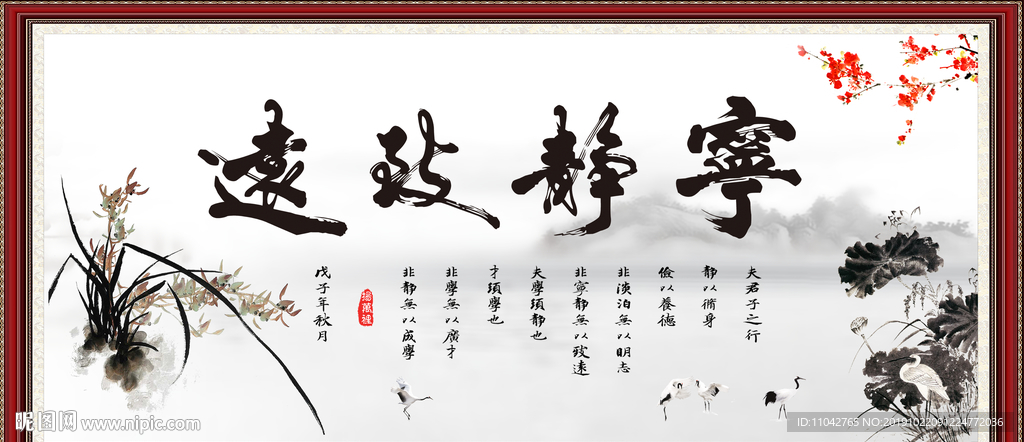 寧靜致遠
夫君子之行
靜以脩身
儉以養德
非淡泊無以明志
非寧靜無以致遠
夫學須靜也
才須學也
非學無以廣才
非靜無以成學
戊子年秋月
昵图网 www.nipic.com
ID:11042763 NO:20191022091224772036